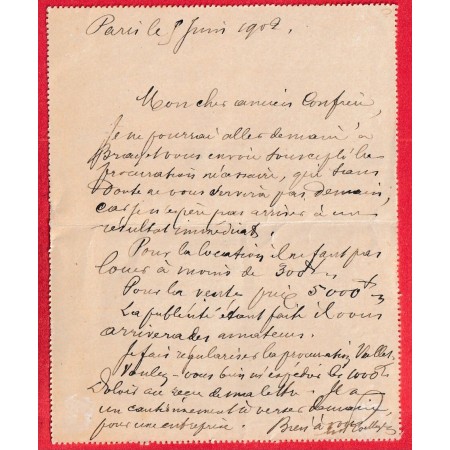 Paris le 5 Juin 1902.
Mon cher ancien Confrère,
Je ne pourrai aller demain à
vous envoie sous ce pli la
procuration nécessaire, qui sans
doute ne vous servira pas demain,
car je n'espère pas arriver à un
résultat immédiat.
Pour la location il ne faut pas
louer à moins de 300f
Pour la vente prix 5000f
La publicité étant faite il vous
arrivera des amateurs.
Je fais régulariser la procuration
Voulez-vous bien m'expédier les
au reçu de ma lettre. Il a
un cautionnement à verser demain
pour une entreprise. Bien à vous